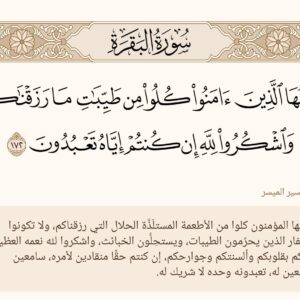 سُورَةُ البَقَرَةِ
ٱلَّذِينَ ءَامَنُوا۟ كُلُوا۟ مِن طَيِّبَٰتِ مَا رَزَقْنَٰكُ
وَٱشْكُرُوا۟ لِلَّهِ إِن كُنتُمْ إِيَّاهُ تَعْبُدُونَ ١٧٢
الميسر
المؤمنون كلوا من الأطعمة المستلَذَّة الحلال التي رزقناكم، ولا تكونوا
الذين يحرِّمون الطيبات، ويستحِلُّون الخبائث، واشكروا لله نعمه
بقلوبكم وألسنتكم وجوارحكم، إن كنتم حقًّا منقادين لأمره، سامعين
له، تعبدونه وحده لا شريك له.